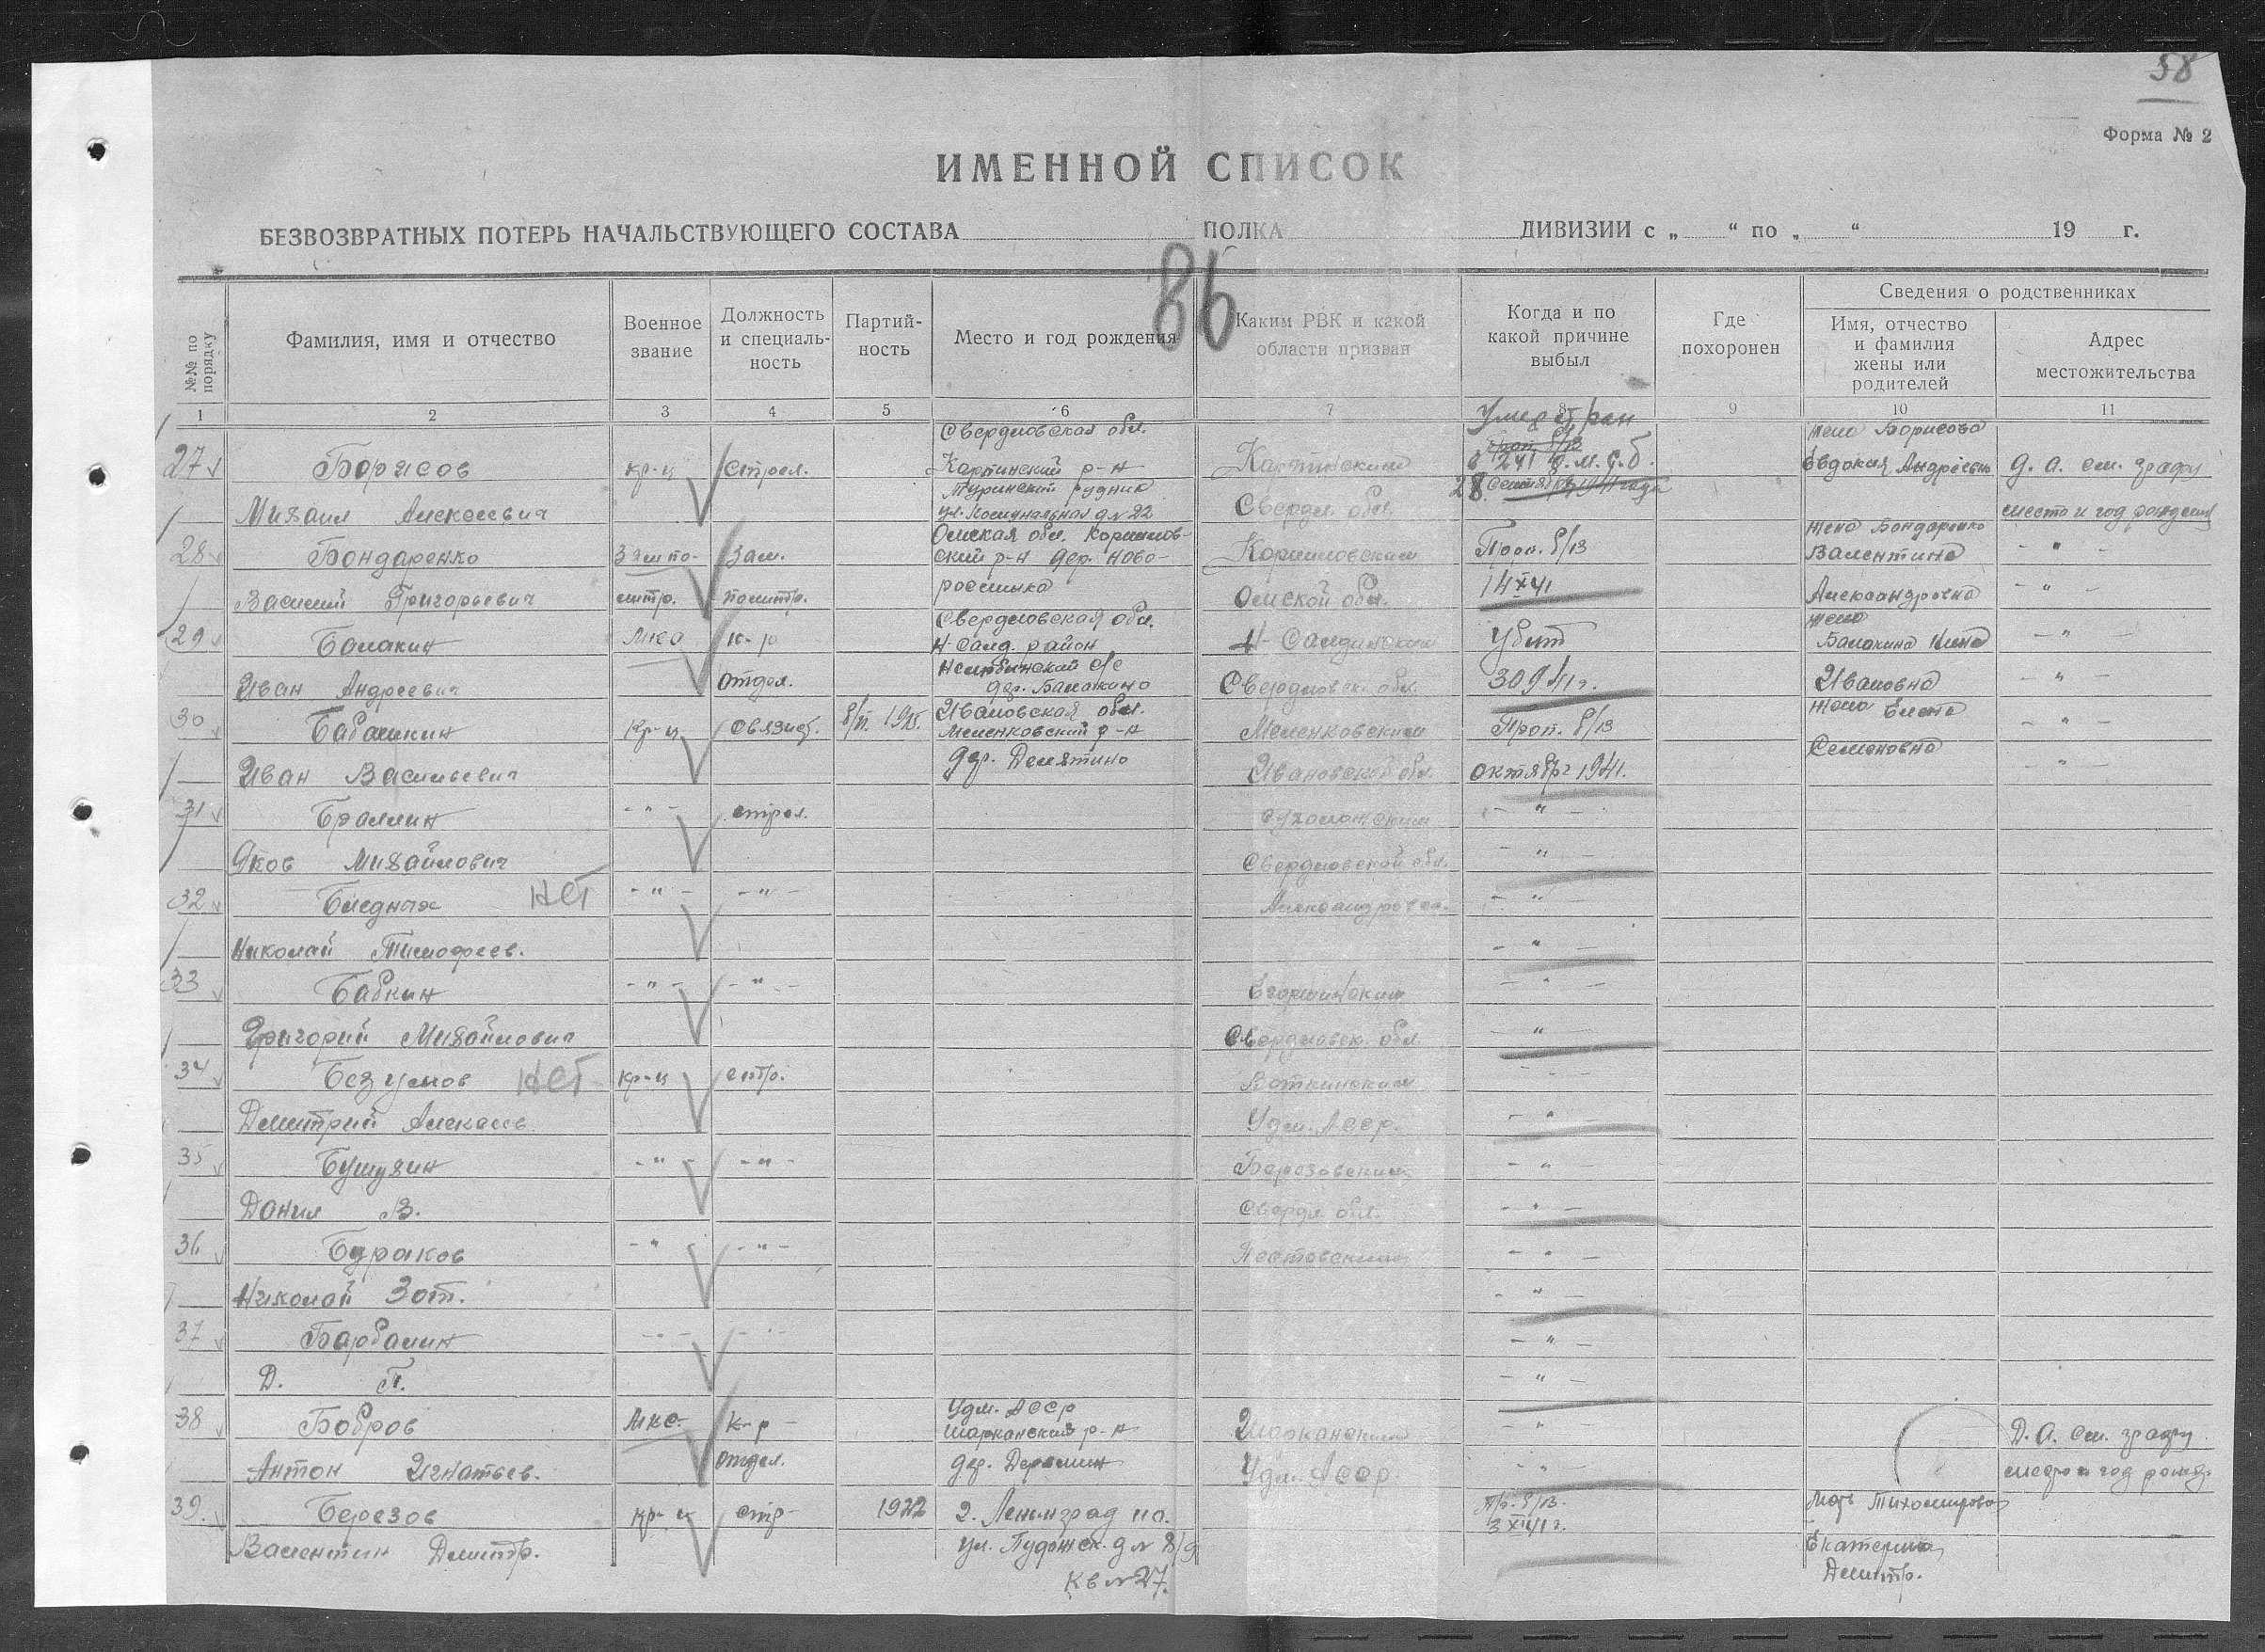 58
Форма № 2
ИМЕННОЙ СПИСОК
БЕЗВОЗВРАТНЫХ ПОТЕРЬ НАЧАЛЬСТВУЮЩЕГО СОСТАВА ПОЛКА ДИВИЗИИ с „ “ по „ “ 19 г.
86
№№ по порядку
Фамилия, имя и отчество
Военное звание
Должность и специаль-ность
Партий-ность
Место и год рождения
Каким РВК и какой области призван
Когда и по какой причине выбыл
Где похоронен
Сведения о родственниках
Имя, отчество и фамилия жены или родителей
Адрес местожительства
1 2 3 4 5 6 7 8 9 10 11
Свердловская обл. Умер от ран жена Борисова
27 Борисов кр-ц стрел. Карпинский р-н Карпинским в 241 о.м.с.б. Евдокия Андреевна д. а. см. графу
Туринский рудник 28 сентября 1941 года
Михаил Алексеевич ул. Коммунальная д № 22 Свердл. обл. место и год рождения
Омская обл. Кормилов- жена Бондаренко
28 Бондаренко Зам по- Зам. ский р-н дер. Ново- Кормиловским Проп. б/в Валентина - " -
Василий Григорьевич литр. политр. россинка Омской обл. 14 XI 41 Александровна - " -
Свердловская обл. жена
29 Балакин Мкс к-р Н-Салд. район Н-Салдинским Убит Балакина Нина - " -
Иван Андреевич отдел. дер. Балакино Свердловск. обл. 30 9 41 г. Ивановна - " -
30 Бабашкин Кр-ц связист. Ивановская обл. жена Елена
Меленковский р-н Меленковским Проп. б/в - " -
Иван Васильевич дер. Демятино Ивановской обл. октябрь 1941. Семеновна - " -
31 Браллин - " - стрел. Сухоложским - " -
Яков Михайлович Свердловской обл. - " -
32 Бледных нет - " - - " - Александровск. - " -
Николай Тимофеев. - " -
33 Бабкин - " - - " - Егоршинским - " -
Григорий Михайлович Свердловск. обл - " -
34 Безумов нет кр-ц стр. Воткинским - " -
Дмитрий Алексеев. Удм. АССР. - " -
35 Бушуяин - " - - " - Березовским - " -
Данил В. Свердл обл. - " -
36 Бураков - " - - " - - " -
Николай Зот. - " -
37 Барбалин - " - - " - - " -
Д. П. - " -
38 Бобров Мкс- к-р Удм. АССР
Шарканский р-н Шарканским - " - Д. А. см. графу
Антон Игнатьев. отдел. дер. Деремин Удм. АССР - " - место и год рожд.
39. Березов кр-ц стр- 1922 г. Ленинград Пр. б/в. Мать Тихомирова
3 XI 41 г.
Валентин Дмитр. ул. Пудожск. д № 8/9 Екатерина
кв № 27. Дмитр.